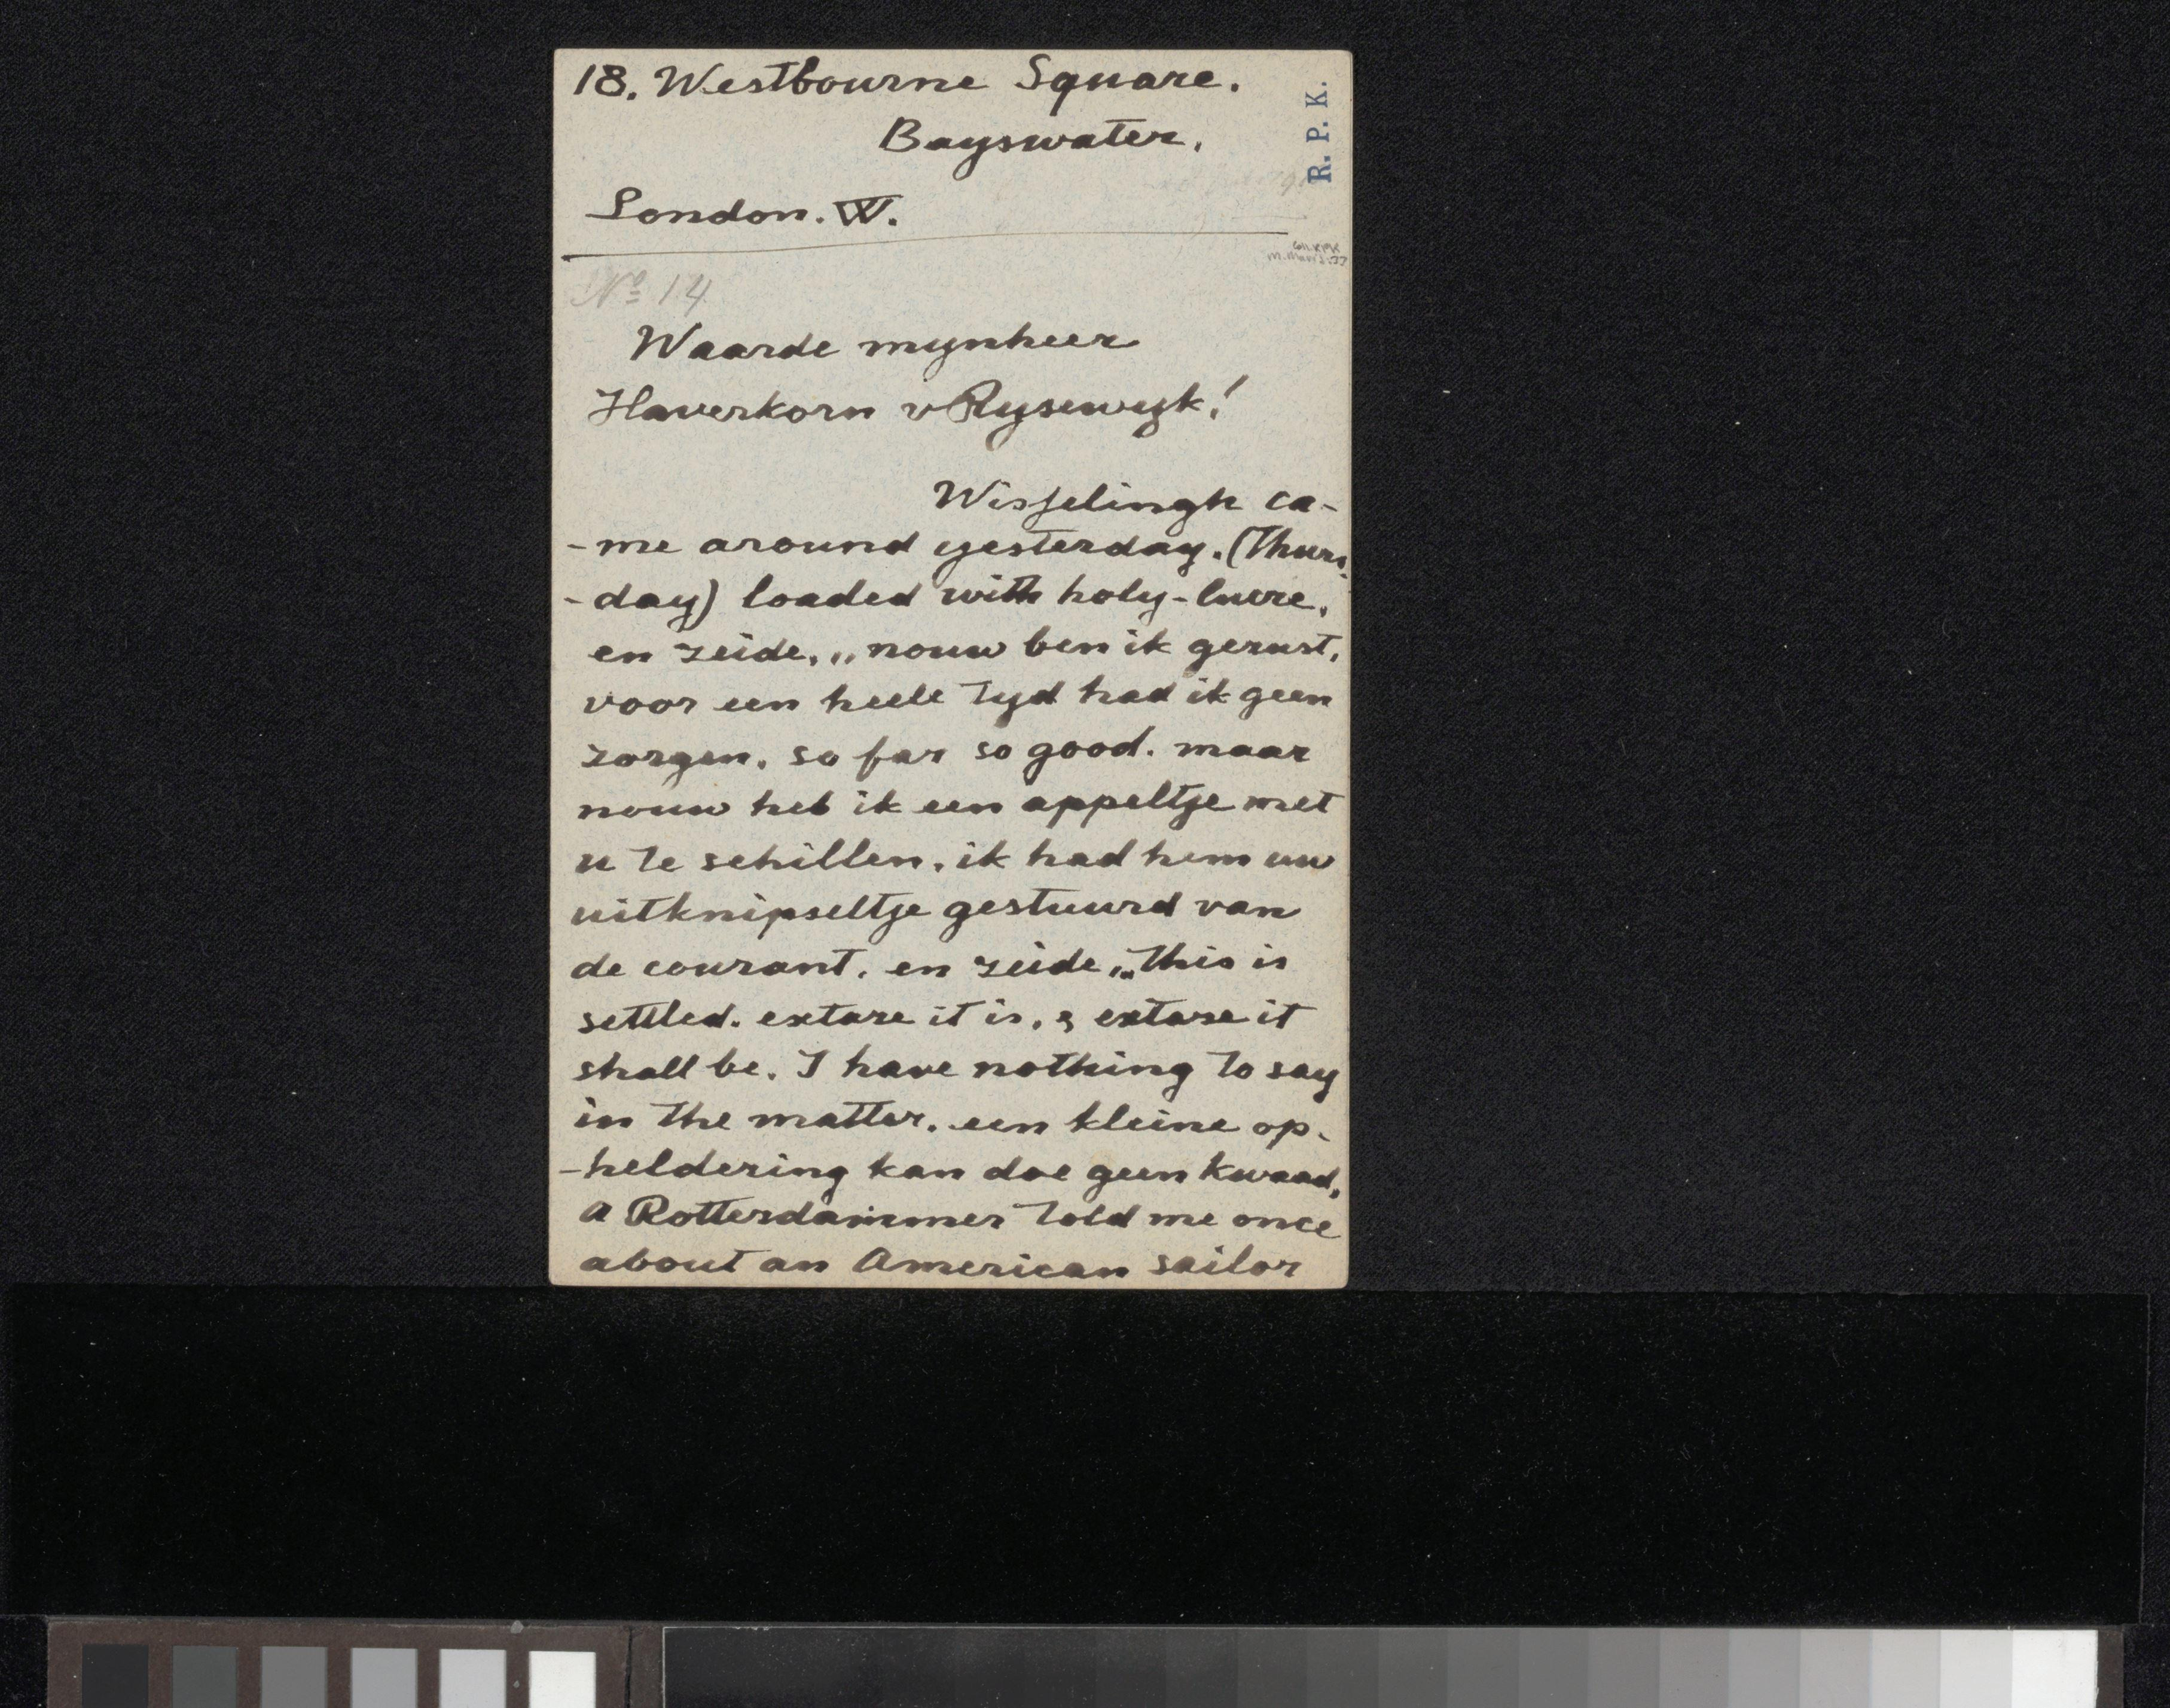 18. Westbourne Square.
Bayswater.
R. P. K.
London. W.
No 14
Waarde mynheer
Haverkorn v Rysewyk!
Wisselingh ca-
-me around yesterday. (Thurs-
-day) loaded with holy-lucre.
en zeide, „nouw ben ik gerust.
voor een heele tyd had ik geen
zorgen. so far so good. maar
nouw heb ik een appeltje met
u te schillen. ik had hem uw
uitknipseltje gestuurd van
de courant. en zeide „this is
settled. extase it is, & extase it
shall be. I have nothing to say
in the matter. een kleine op-
-heldering kan doe geen kwaad.
A Rotterdammer told me once
about an American sailor